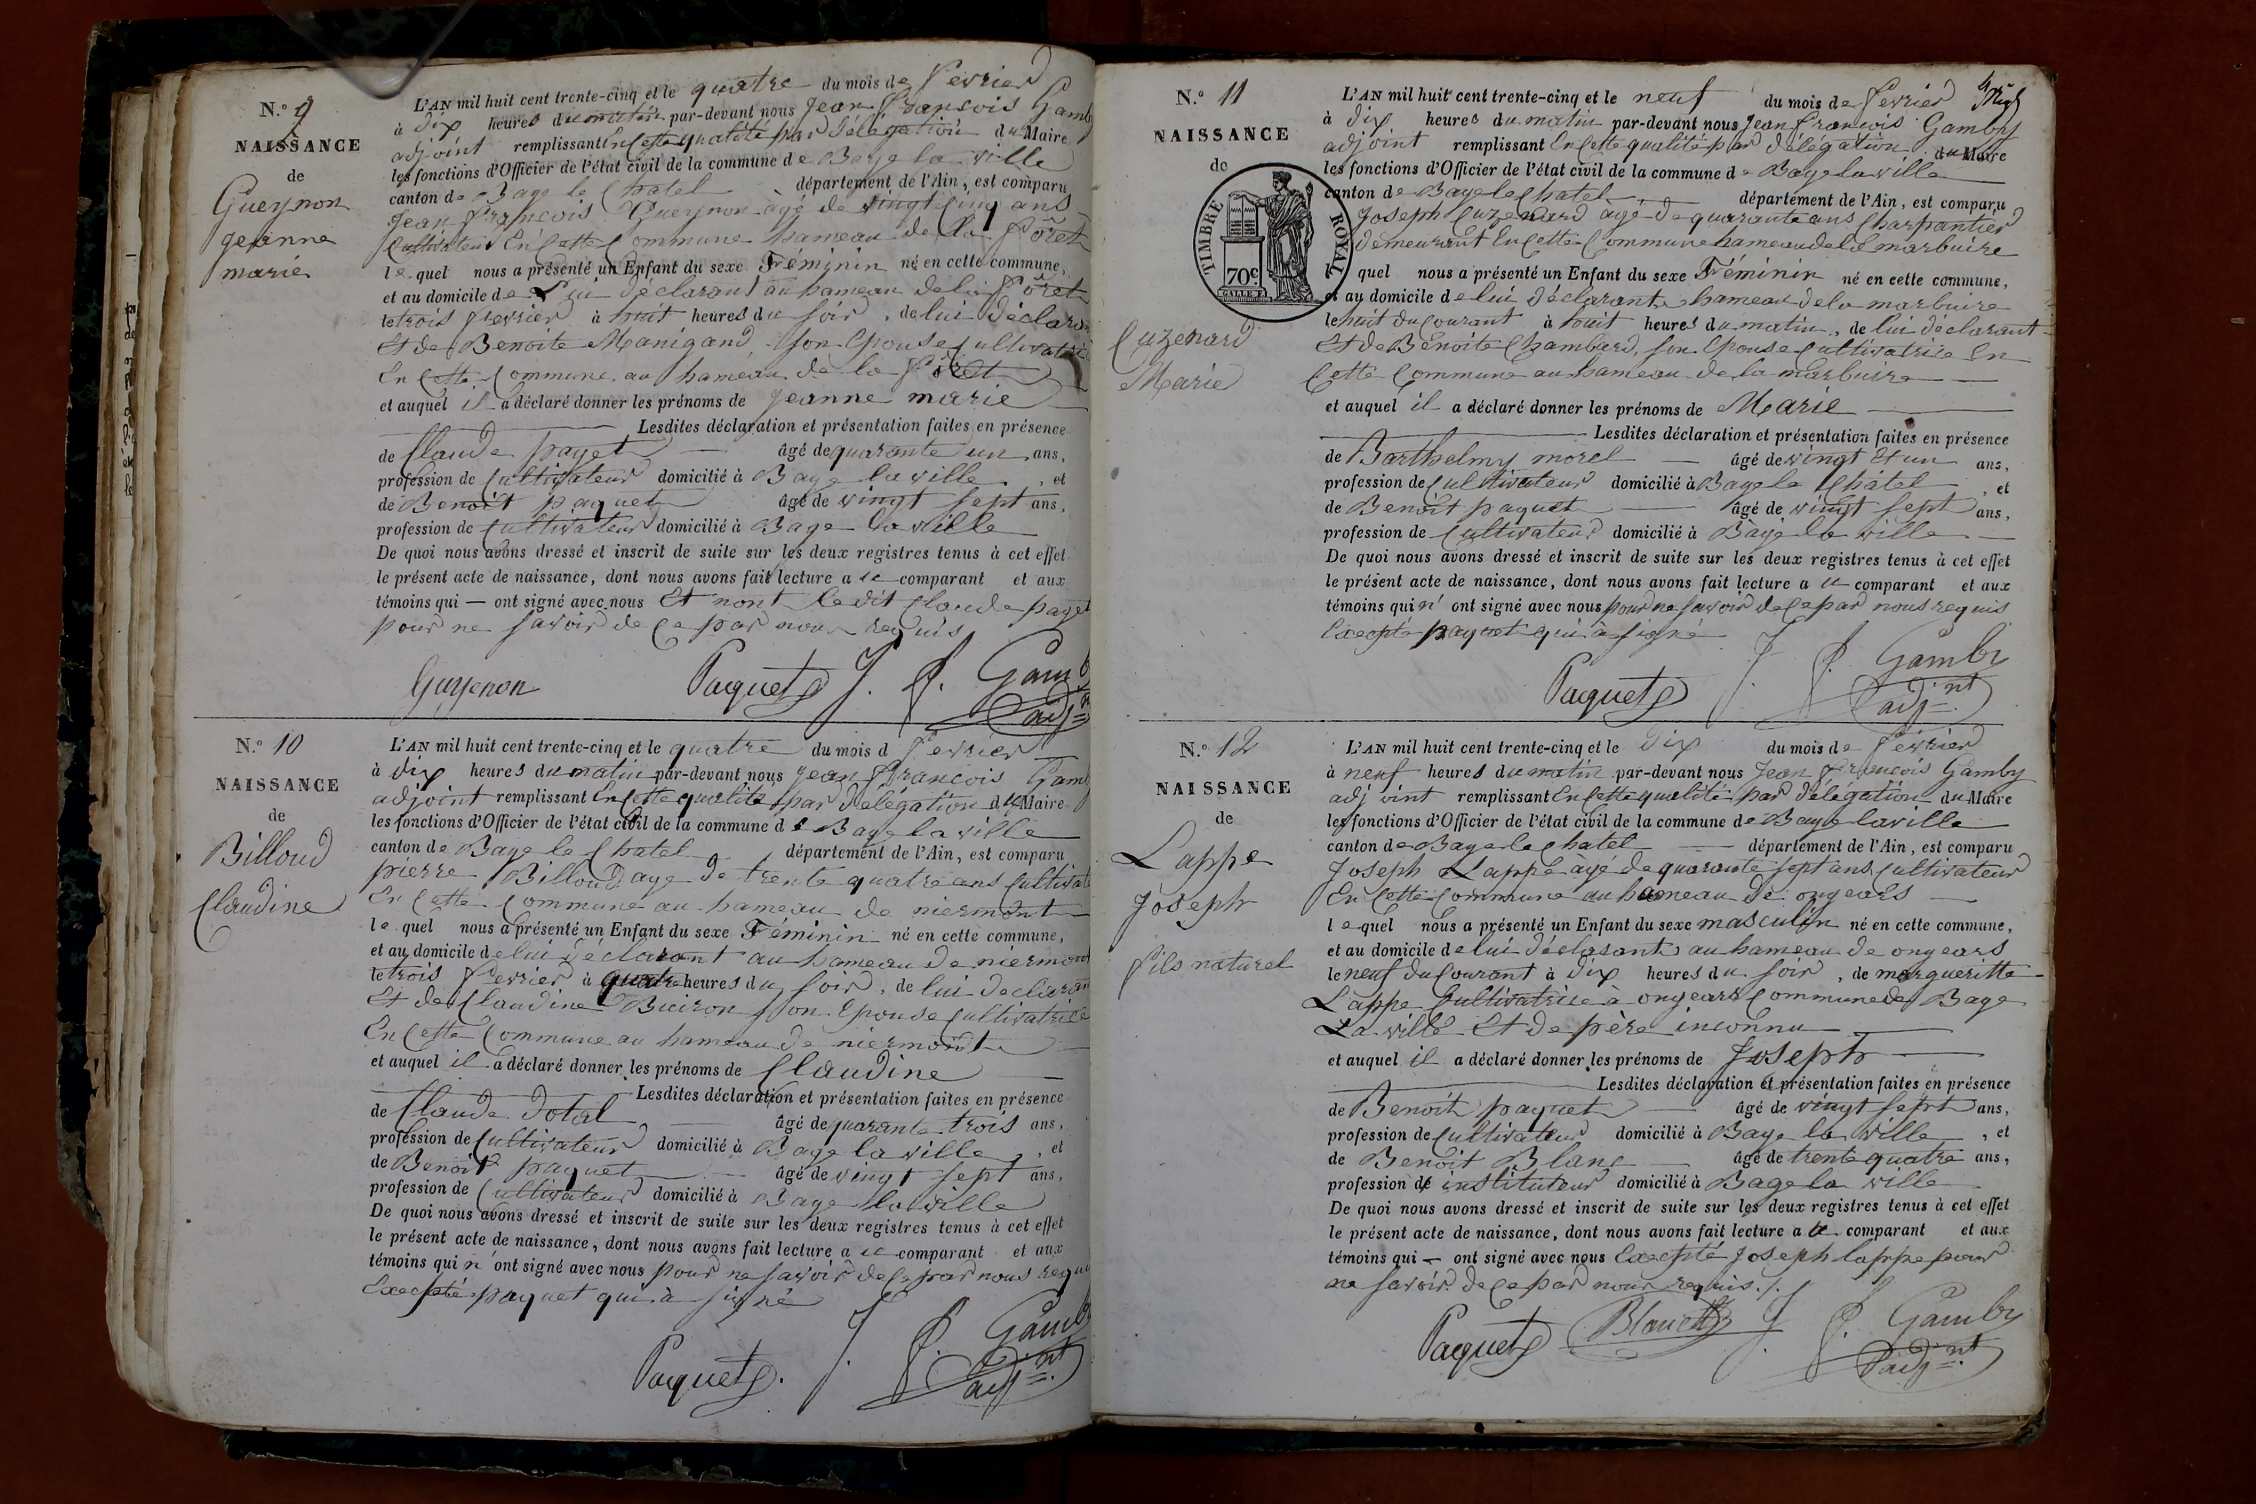 N.o 9
NAISSANCE
de
Gueynon
jeanne
marie
L'AN mil huit cent trente-cinq et le quatre du mois de Fevrier
à dix heures du matin par-devant nous jean François Gamby
adjoint remplissant En Cette qualité par délégation du Maire
les fonctions d'Officier de l'état civil de la commune de Bage la ville
canton de Bage le Chatel département de l'Ain, est comparu
Jean François Gueynon agé de vingt Cinq ans
Cultivateur En Cette Commune hameau de la Fôret
le quel nous a présenté un Enfant du sexe Feminin né en cette commune,
et au domicile de Lui déclarant au hameau de la Fôret
le trois fevrier à huit heures du soir, de lui déclarant
Et de Benoite Manigand, son Epouse Cultivatrice
En Cette Commune au hameau de la Fôret
et auquel il a déclaré donner les prénoms de jeanne marie
Lesdites déclaration et présentation faites en présence
de Claude paget âgé de quarante un ans,
profession de Cultivateur domicilié à Bage la ville, et
de Benoit paquet âgé de vingt sept ans,
profession de Cultivateur domicilié à Bage la ville
De quoi nous avons dressé et inscrit de suite sur les deux registres tenus à cet effet
le présent acte de naissance, dont nous avons fait lecture a ce comparant et aux
témoins qui — ont signé avec nous Et nont ledit Claude paget
pour ne savoir de Ce par nous requis
Guyenon Paquet J. F. Gamby
adj nt
N.o 10
NAISSANCE
de
Billoud
Claudine
L'AN mil huit cent trente-cinq et le quatre du mois d Fevrier
à dix heures du matin par-devant nous jean François Gamby
adjoint remplissant En Cette qualité par délégation du Maire
les fonctions d'Officier de l'état civil de la commune de Bage la ville
canton de Bage le Chatel département de l'Ain, est comparu
pierre Billoud age de trente quatre ans Cultivateur
En Cette Commune au hameau de niermont
le quel nous a présenté un Enfant du sexe Féminin né en cette commune,
et au domicile de lui déclarant au hameau de niermont
le trois Fevrier à quatre heures du soir, de lui declarant
Et de Claudine Buiron son Epouse Cultivatrice
En Cette Commune au hameau de niermont
et auquel il a déclaré donner les prénoms de Claudine
Lesdites déclaration et présentation faites en présence
de Claude Dotal âgé de quarante trois ans,
profession de Cultivateur domicilié à Bage la ville, et
de Benoit paquet âgé de vingt sept ans,
profession de Cultivateur domicilié à Bage la ville
De quoi nous avons dressé et inscrit de suite sur les deux registres tenus à cet effet
le présent acte de naissance, dont nous avons fait lecture a ce comparant et aux
témoins qui n' ont signé avec nous pour ne savoir de Ce par nous requis
Excepté paquet qui à signé
Paquet J. F. Gamby
adj nt
N.o 11
NAISSANCE
de
TIMBRE ROYAL
70c
Cuzenard
Marie
L'AN mil huit cent trente-cinq et le neuf du mois de Fevrier
à dix heures du matin par-devant nous Jean François Gamby
adjoint remplissant En Cette qualité par délégation du Maire
les fonctions d'Officier de l'état civil de la commune de Bage la ville
canton de Bage le Chatel département de l'Ain, est comparu
Joseph Cuzenard àgé de quarante ans Charpantier
demeurant En Cette Commune hameau de la marbuire
le quel nous a présenté un Enfant du sexe Féminin né en cette commune,
et au domicile de lui déclarant hameau de la marbuire
le huit du Courant à huit heures du matin, de lui déclarant
Et de Bénoite Chambard, son Epouse Cultivatrice En
Cette Commune au hameau de la marbuire
et auquel il a déclaré donner les prénoms de Marie
Lesdites déclaration et présentation faites en présence
de Barthelmy morel âgé de vingt Et un ans,
profession de Cultivateur domicilié à Bage le Châtel, et
de Benoit paquet âgé de vingt sept ans,
profession de Cultivateur domicilié à Bage la ville
De quoi nous avons dressé et inscrit de suite sur les deux registres tenus à cet effet
le présent acte de naissance, dont nous avons fait lecture a ce comparant et aux
témoins qui n' ont signé avec nous pour ne savoir de Ce par nous requis
Excepté paquet qui à signé
Paquet J. F. Gamby
adj nt
N.o 12
NAISSANCE
de
Lappe
Joseph
fils naturel
L'AN mil huit cent trente-cinq et le dix du mois de Février
à neuf heures du matin par-devant nous Jean François Gamby
adjoint remplissant En Cette qualité par délégation du Maire
les fonctions d'Officier de l'état civil de la commune de Bage la ville
canton de Bage le Chatel département de l'Ain, est comparu
Joseph Lappe àgé de quarante sept ans Cultivateur
En Cette Commune au hameau de ongears
le quel nous a présenté un Enfant du sexe masculin né en cette commune,
et au domicile de lui déclarant au hameau de ongears
le neuf du Courant à dix heures du soir, de margueritte
Lappe Cultivatrice à ongears Commune de Bage
La ville Et de père inconnu
et auquel il a déclaré donner les prénoms de Joseph
Lesdites déclaration et présentation faites en présence
de Benoit paquet âgé de vingt sept ans,
profession de Cultivateur domicilié à Bage la ville, et
de Benoit Blanc âgé de trente quatre ans,
profession de instituteur domicilié à Bage la ville
De quoi nous avons dressé et inscrit de suite sur les deux registres tenus à cet effet
le présent acte de naissance, dont nous avons fait lecture a ce comparant et aux
témoins qui — ont signé avec nous Excepté Joseph lappe pour
ne savoir de Ce par nous requis./.
Paquet Blanc J. F. Gamby
adj nt